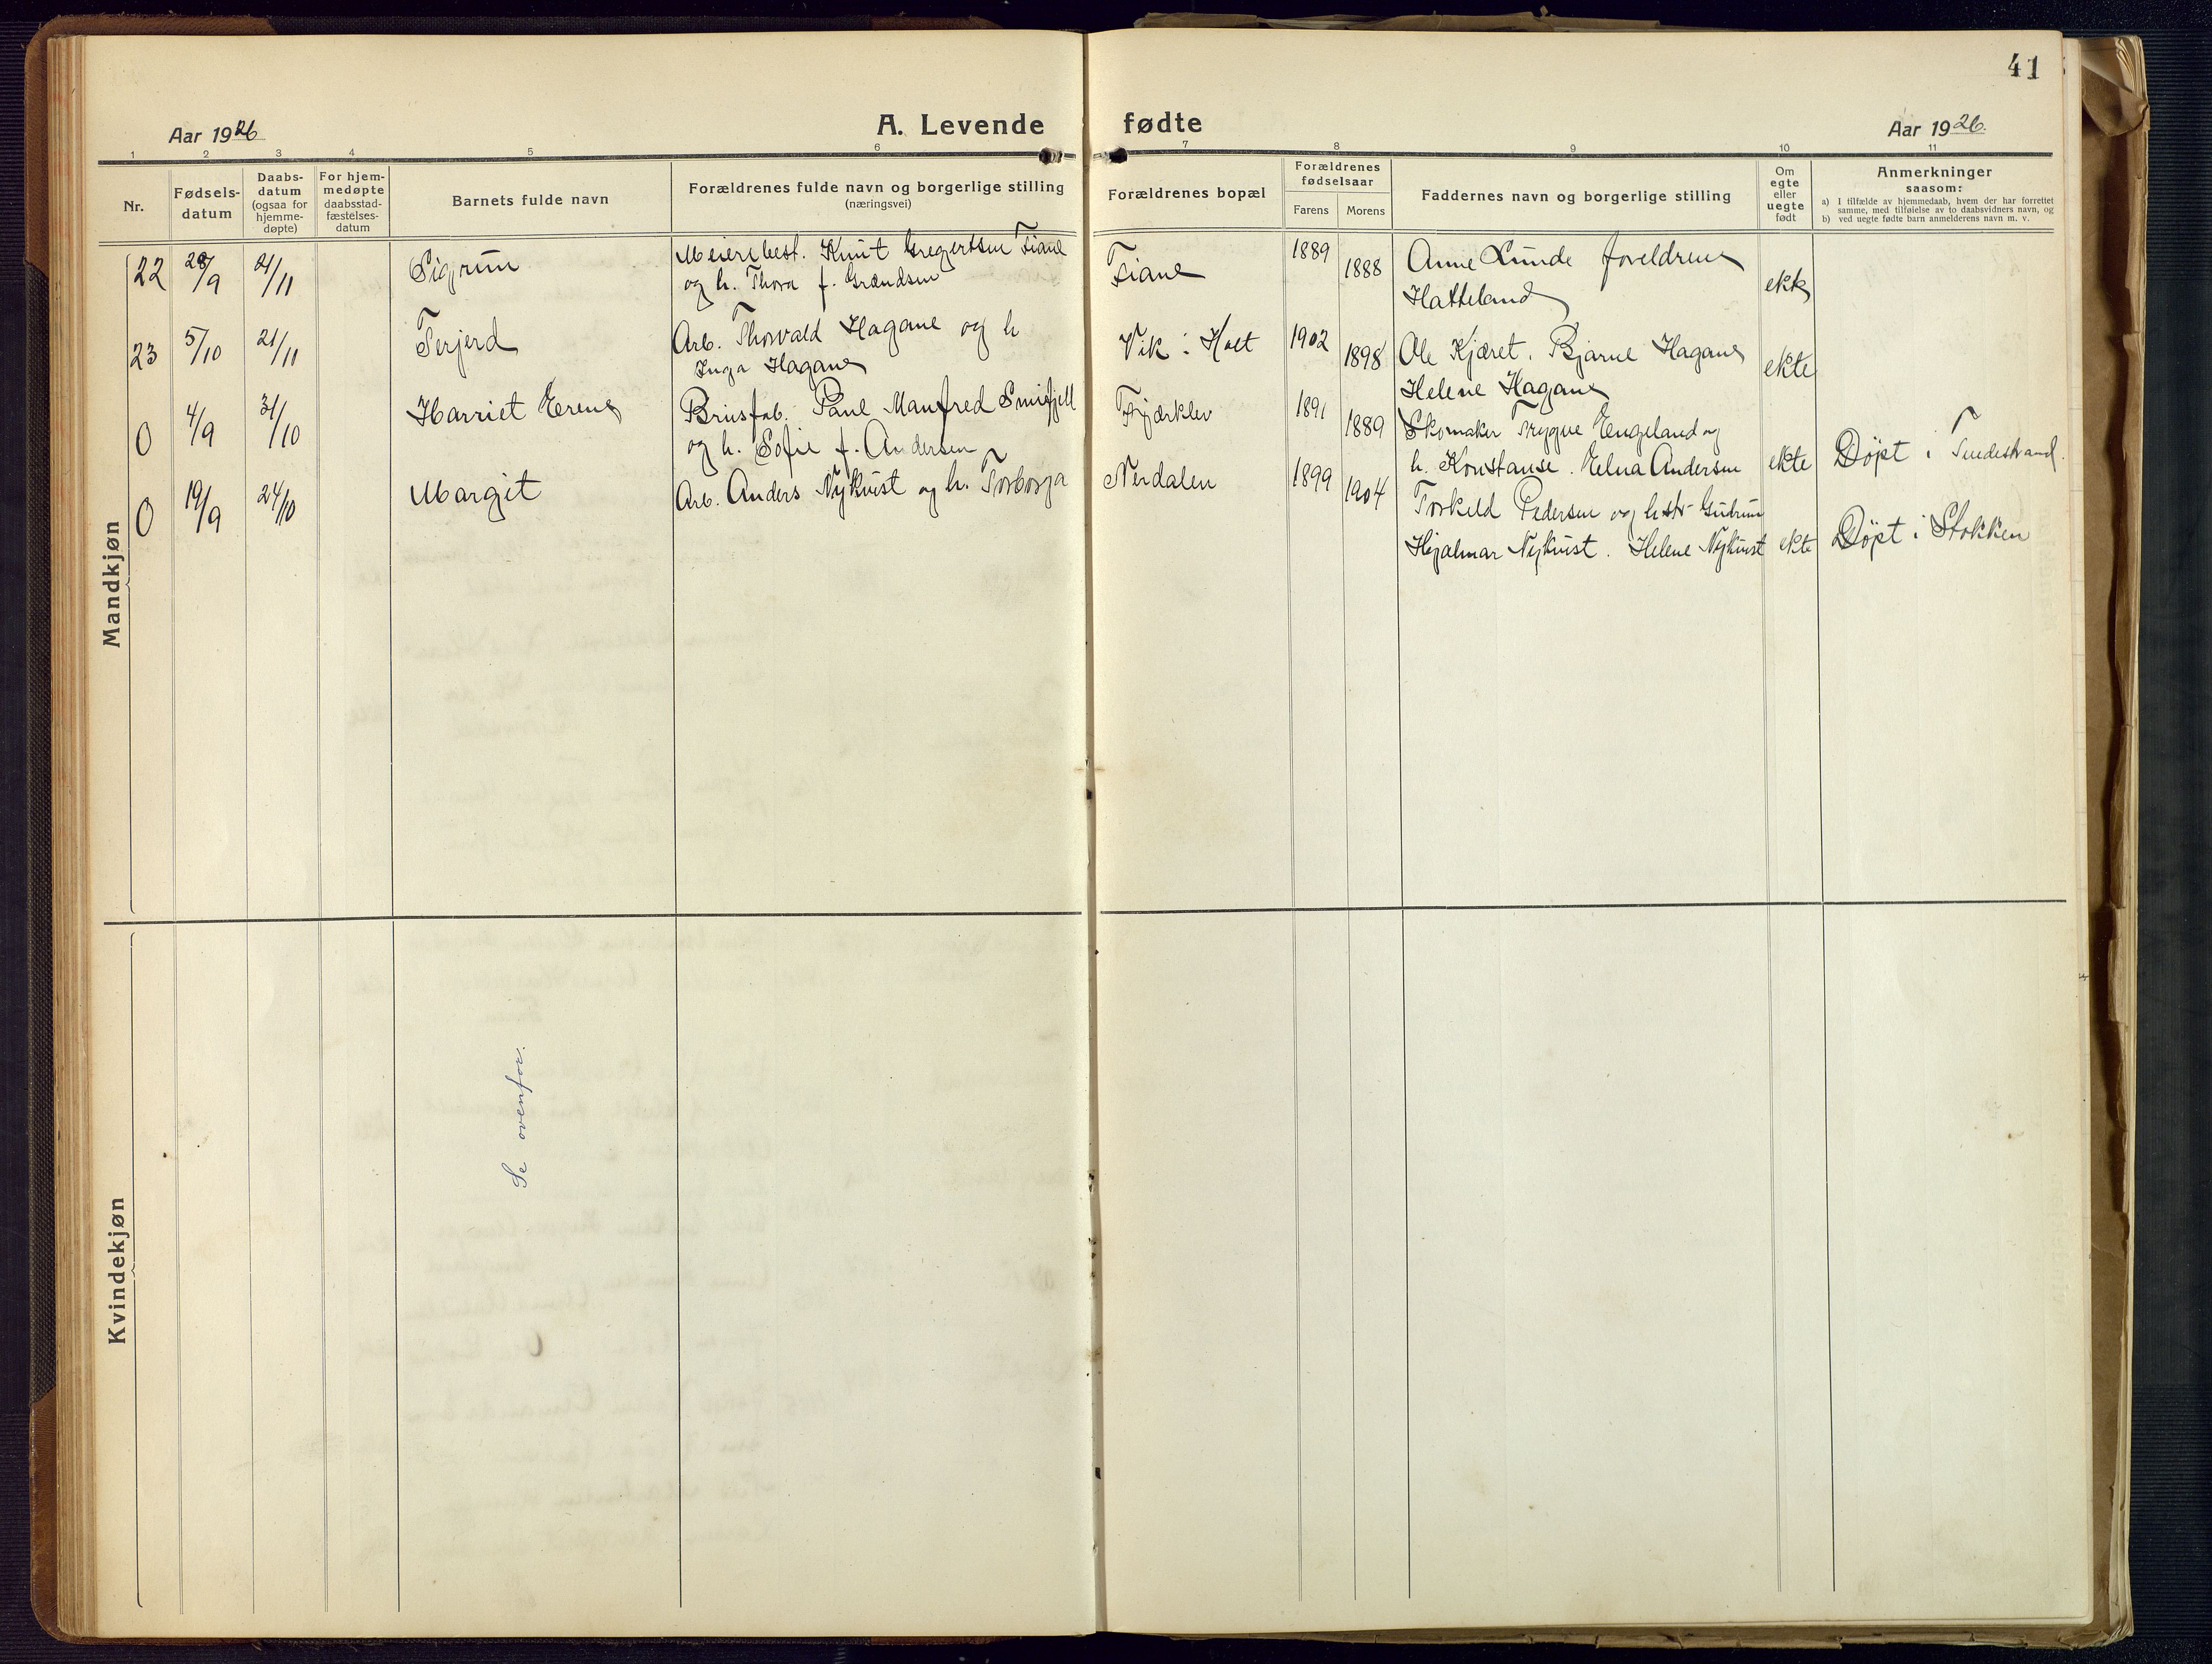 41
Aar 1926
A. Levende fødte
Aar 1926.
1 2 3 4 5 6 7 8 9 10 11
Nr.
Fødsels-
datum
Daabs-
datum
(ogsaa for
hjemme-
døpte)
For hjem-
medøpte
daabsstad-
fæstelses-
datum
Barnets fulde navn
Forældrenes fulde navn og borgerlige stilling
(næringsvei)
Forældrenes bopæl
Forældrenes
fødselsaar
Farens Morens
Faddernes navn og borgerlige stilling
Om
egte
eller
uegte
født
Anmerkninger
saasom:
a) I tilfælde av hjemmedaab, hvem der har forrettet
samme, med tilføielse av to daabsvidners navn, og
b) ved uegte fødte barn anmelderens navn m. v.
Mandkjøn
22 28/9 21/11 Sigrun Meieribest. Knut Gregertsen Fiane Fiane 1889 1888 Anne Lunde foreldrene
og h. Thora f. Hatteland ekte
23 5/10 21/11 Terjerd Arb. Thorvald Hagane og h Vik i Holt 1902 1898 Ole Kjæret. Bjarne Hagane
Inga Hagane Helene Hagane ekte
0 4/9 31/10 Harriet Erene Brusfab. Paul Manfred Smifjell 1891 1889 Skomaker Trygve Engeland og
og h. Sofie f. Andersen h. Konstanse. Elna Andersen ekte Døpt i Tvedestrand.
0 19/9 24/10 Margit Arb. Anders Nykvist og h. Torborga Nerdalen 1899 1904 Torkeld Pedersen og hstr Gudrun
Hjalmar Nykvist. Helene Nykvist ekte Døpt i Stokken
Kvindekjøn
Se ovenfor.